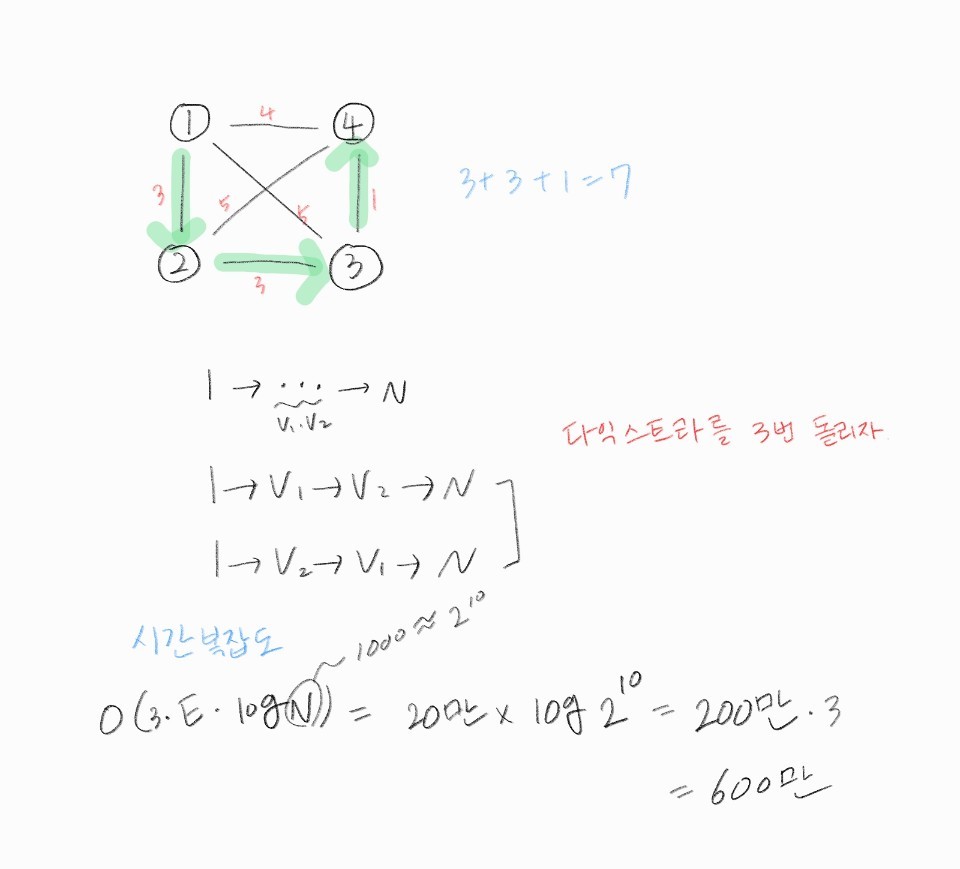 ① 4 ④
3 5 5 1
3+3+1=7
② 3 ③
1 → ... → N
V₁.V₂
다익스트라를 3번 돌리자
1→V₁→V₂→N
1→V₂→V₁→N
시간복잡도
~1000≈2¹⁰
O(3·E·logN)) = 20만 x log 2¹⁰ = 200만·3
= 600만